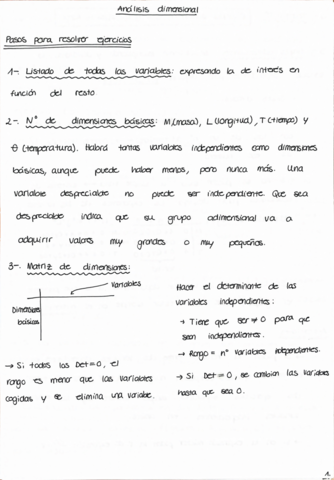 Análisis dimensional
Pasos para resolver ejercicios
1-. Listado de todas las variables: expresando la de interés en
función del resto
2-. Nº de dimensiones básicas: M(masa), L(longitud), T(tiempo) y
θ (temperatura). Habrá tantas variables independientes como dimensiones
básicas, aunque puede haber menos, pero nunca más. Una
variable despreciable no puede ser independiente. Que sea
despreciable indica que su grupo adimensional va a
adquirir valores muy grandes o muy pequeños.
3-. Matriz de dimensiones:
Variables
Dimensiones
básicas
→ Si todos los Det=0, el
rango es menor que las variables
cogidas y se elimina una variable.
Hacer el determinante de las
variables independientes:
→ Tiene que ser ≠ 0 para que
sean independientes.
→ Rango = nº variables independientes.
→ Si Det = 0, se cambian las variables
hasta que sea 0.
1.